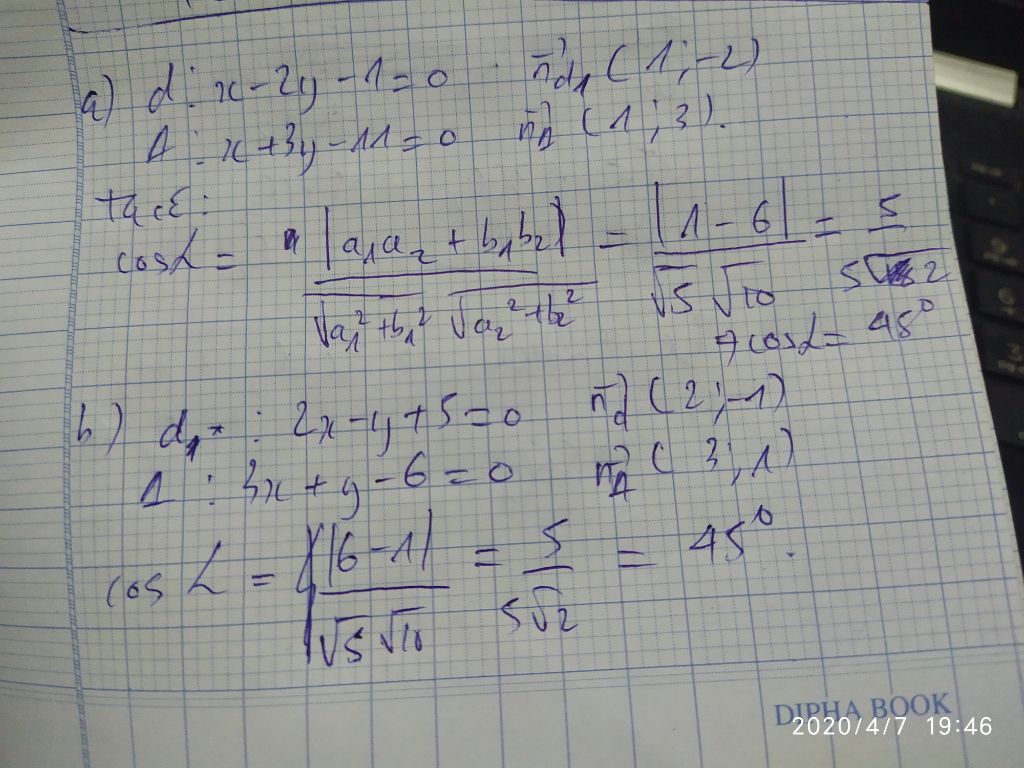 a) d : x - 2y - 1 = 0 n⃗d1 (1 ; -2)
Δ : x + 3y - 11 = 0 n⃗Δ (1 ; 3).
cosα = |a₁a₂ + b₁b₂| / √(a₁² + b₁²) √(a₂² + b₂²) = |1 - 6| / √5 √10 = 5 / 5√2
⇒ cosα = 45°
b) d₁ : 2x - y + 5 = 0 n⃗d (2 ; -1)
Δ : 3x + y - 6 = 0 n⃗Δ (3 ; 1)
cos α = |6 - 1| / √5 √10 = 5 / 5√2 = 45°.
DIPHA BOOK
2020/4/7 19:46